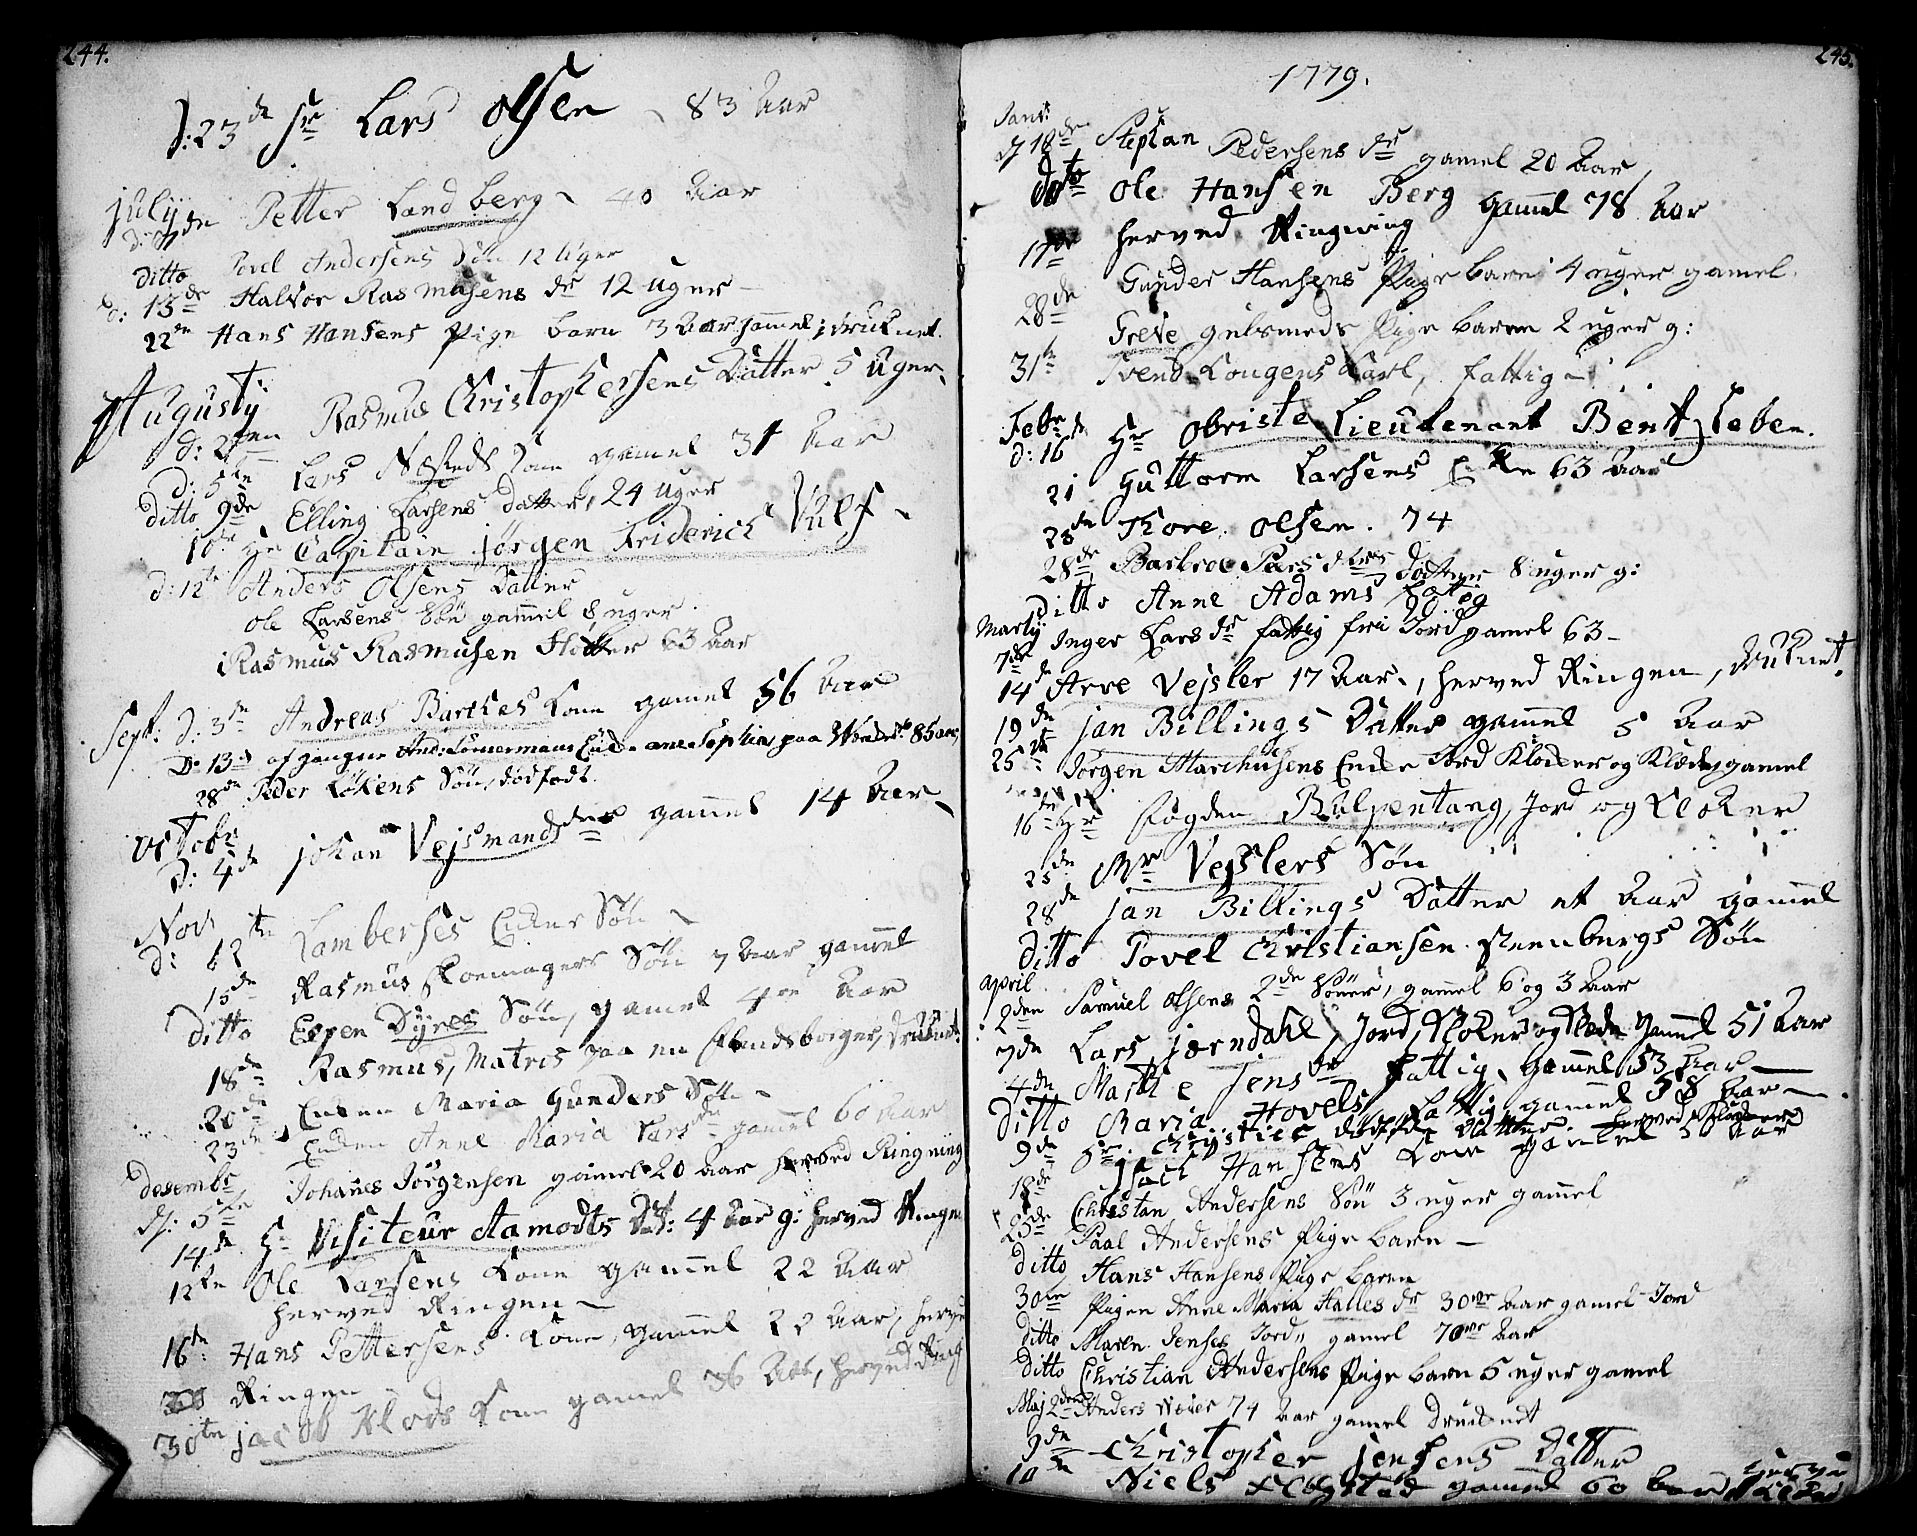 244.
d: 23de Sr Lars Olsen 83 Aar
july
d: 9de Petter Landberg 40 Aar
ditto Povel Andersens Søn 12 Uger
d: 13de Halvor Rasmusens dr 12 Uger
22de Hans Hansens Pige barn 3 Aar gammel, druknet.
Augusty
d: 2den Rasmus Christophersens Datter 5 Uger
D: 5te Lars Næsteds Kone gamel 31 Aar
ditto 9de Elling Larsens datter, 24 Uger
10de Hr Capitain jørgen Friderich Vulf
d: 12te Anders Olsens Datter
Ole Larsens Søn gammel 8 uger
Rasmus Rasmusen 63 Aar
Sept: d: 3de Andreas Barthes Kone gamel 56 Aar
D: 13de afgangne And: Enke ane Sophia paa 85 aar
28de Peder Løkens Søn, dødfødt.
Octobr
D: 4de johan Vejsmands dr gammel 14 Aar
Novr
d: 12te Lamberses Enkes Søn
15de Rasmus Skoemagers Søn 7 Aar gammel
ditto Espen Dyres Søn, gamel 4re Aar
18de Rasmus, Matros paa en Flendsborger, druknet.
20de Enken Maria Gunders Søn
23de Enken Anne Maria Larsdr gammel 60 Aar
desembr
d: 5te Johanes Jørgensen gamel 20 Aar herved Ringning
14de Hr Visiteur Aamodts Dat: 4 Aar g: herved Ringen
12te Ole Larsens Kone gammel 22 Aar
herved Ringen
16de Hans Pettersens Kone, gammel 20 Aar, herved
Ringen
30te jacob Klods Kone gamel 36 Aar, herved Ring
245.
1779.
Janr:
d 18de Stephan Pedersens dr gamel 20 Aar
dito Ole Hansen Berg gammel 78 Aar
herved Ringning
17de Gunder Hansens Pige barn 4 uger gamel.
28de Greve gulsmeds Pige barn 2 uger g:
31te Svend Kougens Karl, fattig
Febr
d: 16de Hr Obriste Lieutenant Bentzleben.
21 Guttorm Larsens Enke 63 Aar
23de Thore Olsen. 74
28de Barbroe Pers drs datter 8 uger g:
ditto Anne Adams fattig
Marty
7de Inger Lars dr fattig fri Jord gamel 63
14de Arve Vejsler 17 Aar, herved Ringen, druknet.
19de jan Billings Datter gammel 5 Aar
25de Jørgen Marchusens Enke Jord Kloker og Klæde gamel
16de Hr fogden Bulpentang, Jord og Kloker
25de Mr Vejslers Søn
28de jan Billings Datter et Aar gammel
ditto Povel Christiansen Steenbergs Søn
april
2den Samuel Olsens 2de Sønner, gammel 6 og 3 Aar
7de Lars jærndahl, Jord, Kloker og Klæde gammel 51 Aar
4de Marthe Jens dr fattig, gammel 53 Aar
ditto Maria Hovels, fattig gammel 58 Aar
9de Sr. Chrysties dødfødte datter.
18de Isach Hansens Kone gammel 50 Aar
23de Christan Andersens Søn 3 uger gammel
Paal Andersens Pige barn
ditto Hans Hansens Pige barn
30te Pigen Anne Maria Halles dr 30ve Aar gamel Jord
ditto Maren Jenses Jord gamel 70ve Aar
ditto Christian Andersens Pige barn 5 uger gamel
Maj 2den Anders 74 Aar gamel Druknet
9de Christopher Jensens Datter
10de Niels gammel 60 Aar